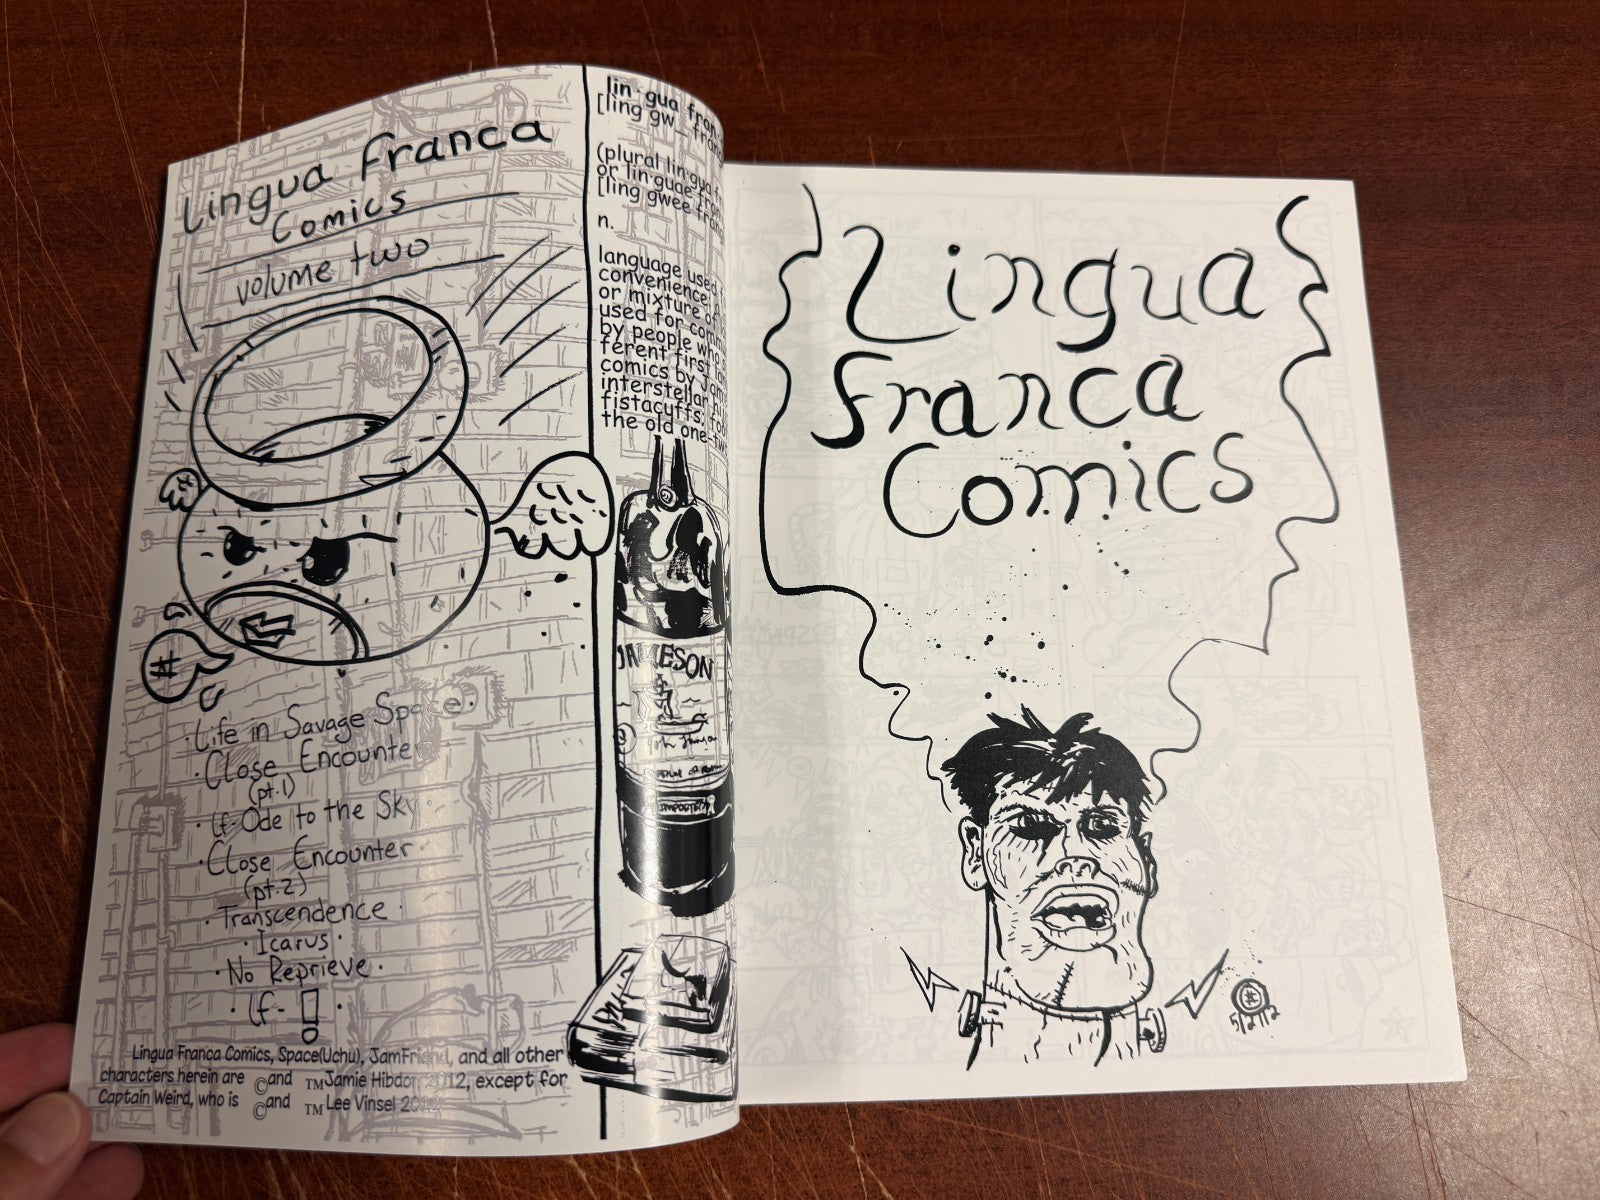 Lingua Franca
Comics
volume two
#
·Life in Savage Space·
·Close Encounter
(pt.1)
·lf-Ode to the Sky
·Close Encounter·
(pt.2)
·Transcendence·
·Icarus·
·No Reprieve·
·lf-!·
Lingua Franca Comics, Space(Uchu), JamFriend, and all other
characters herein are ©and ™Jamie Hibdon 2012, except for
Captain Weird, who is ©and ™Lee Vinsel 2012
lin·gua
[ling gw
(plural lin·gua
or lin·guae
[ling gwee
n.
language used
convenience
or mixture of
used for
by people who
ferent first
comics by
interstellar
fistacuffs:
the old one-
JAMESON
Lingua
Franca
Comics
#
5/2112